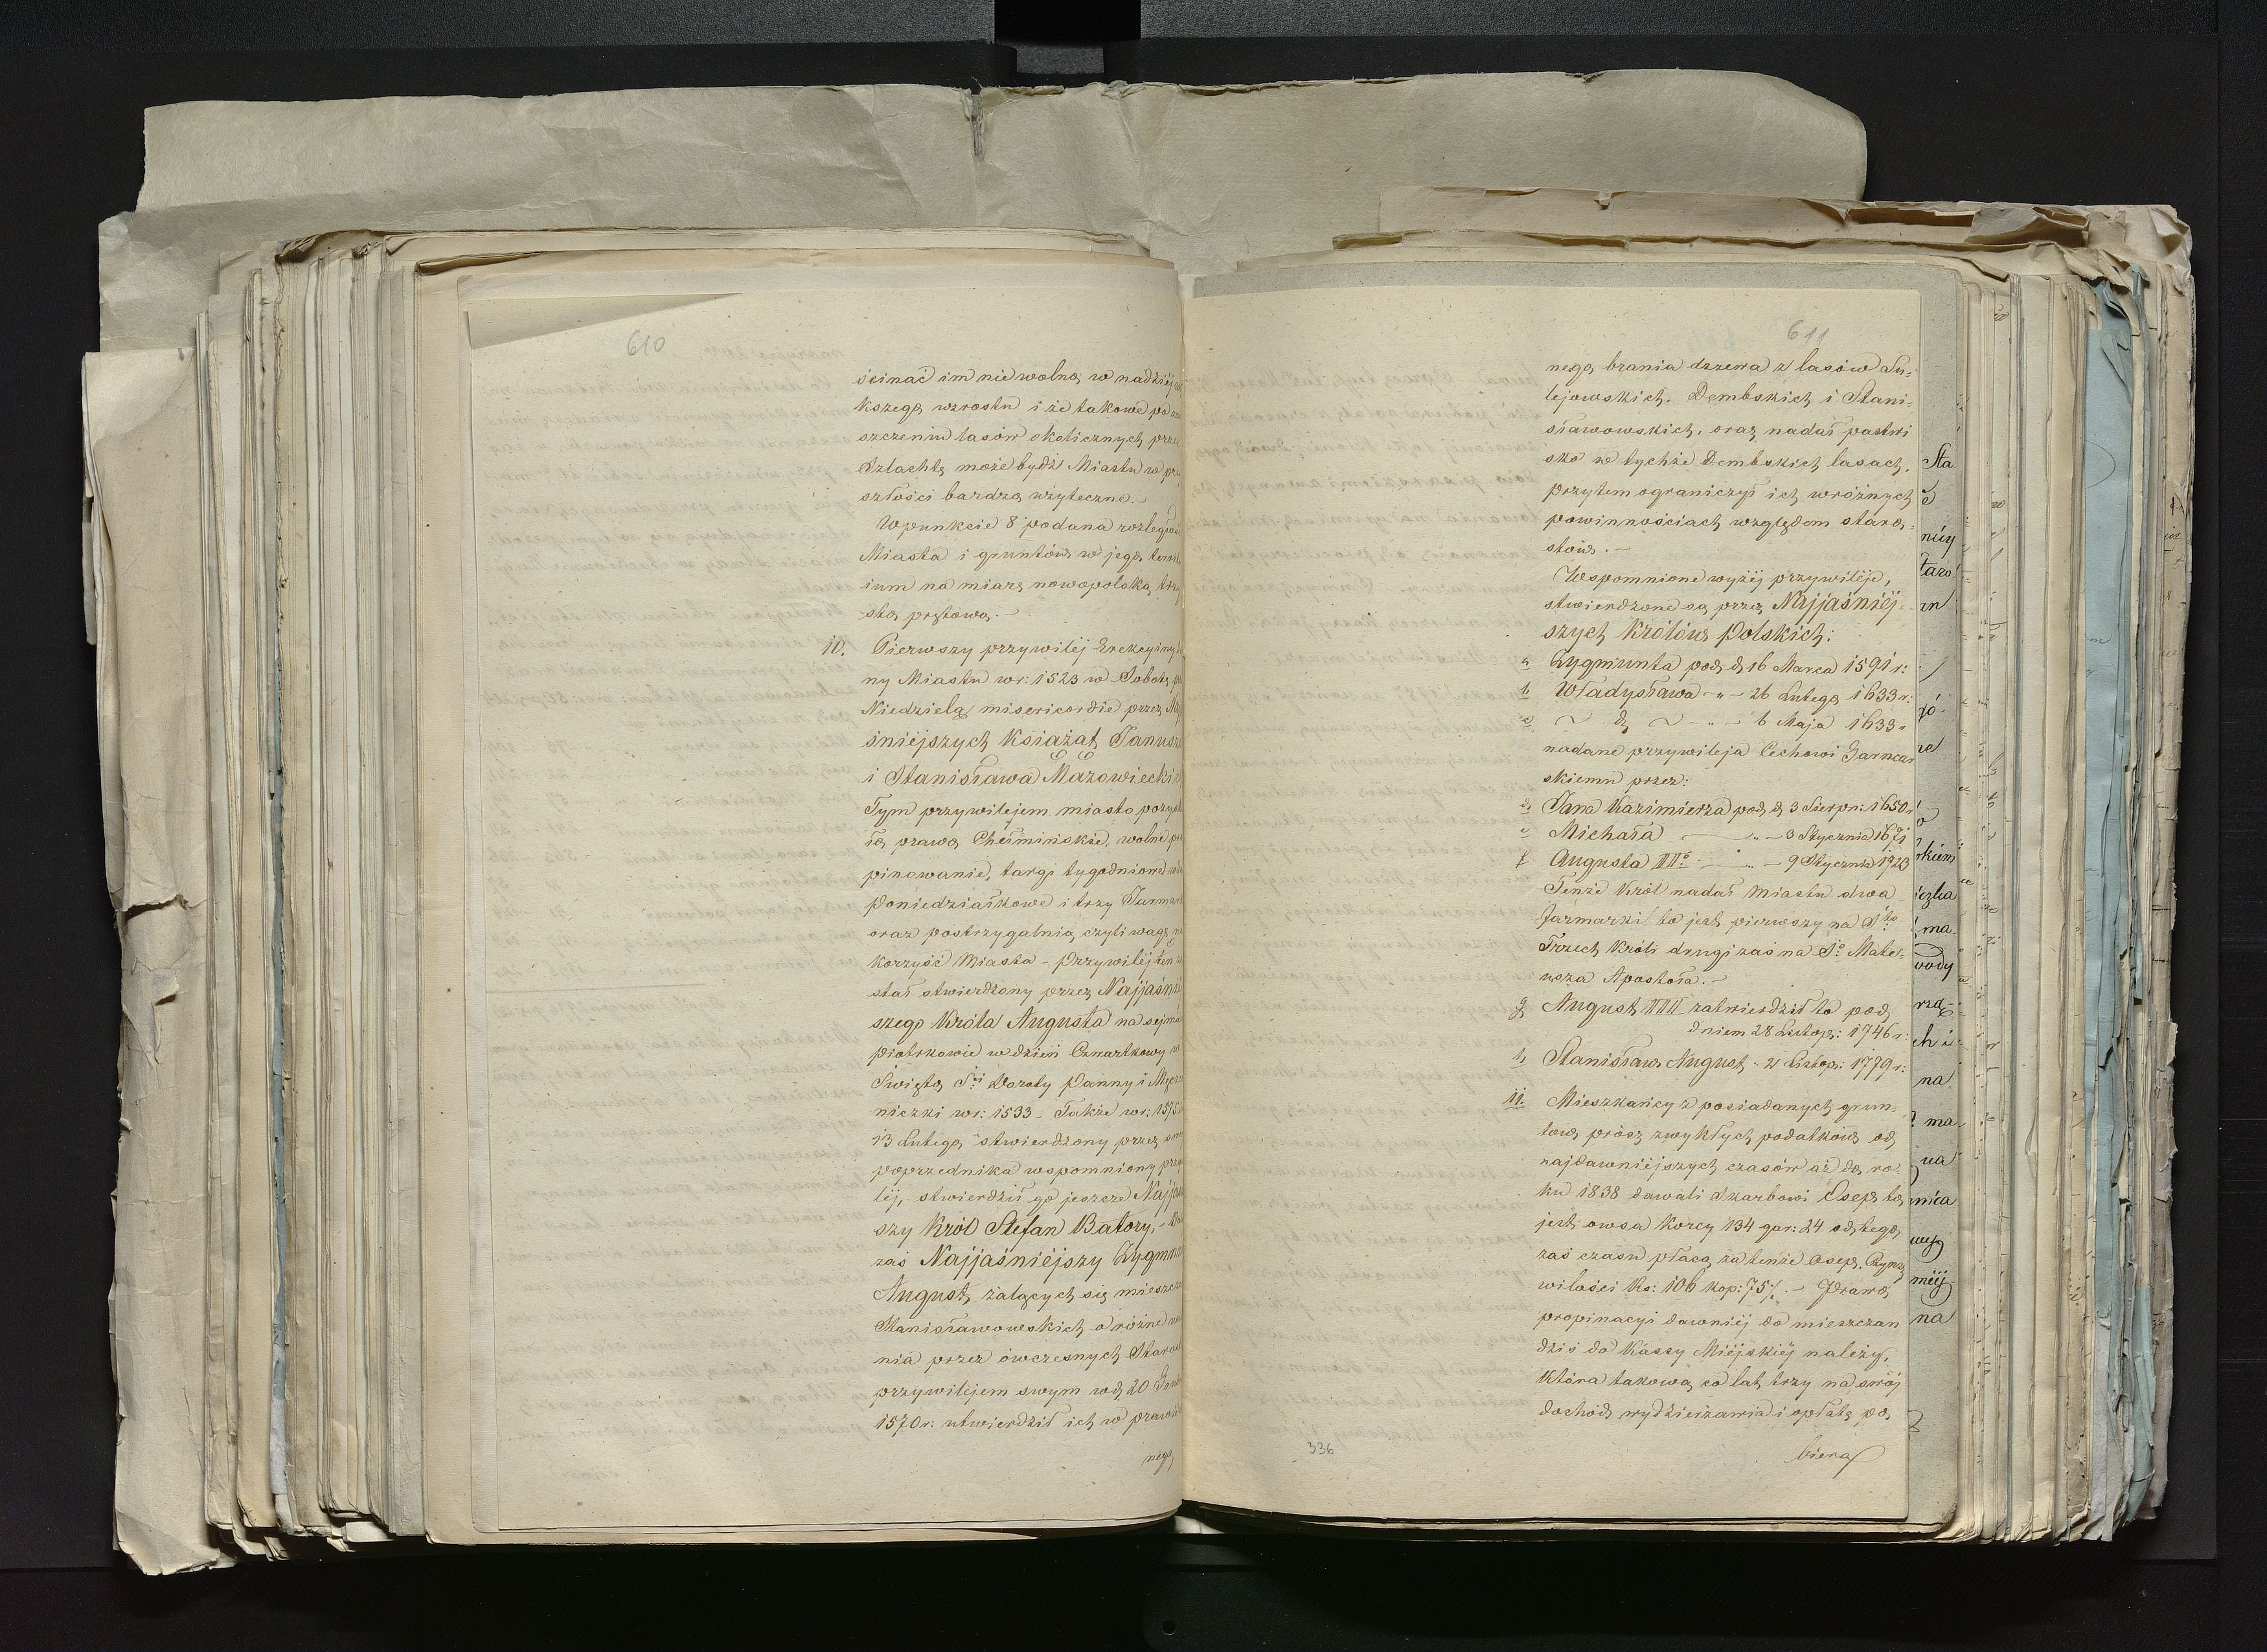 610
ścinać im nie wolno, w nadziei
kszego wzrostu i że takowe po
szczeniu lasów okolicznych przez
Szlachtę może bydź Miastu w prz
szłości bardzo użyteczne.–
W punkcie 8 podana rozległoś
Miasta i gruntów w jego territo
ium na miarę nowopolską trzy
sto prętową.–
10. Pierwszy przywilej Erekcyiny
ny Miastu w r: 1523 w Sobotę p
Niedzielą misericordie przez Naj
śniejszych książąt Janusza
i Stanisława Mazowieckich
Tym przywilejem miasto pozysk
ło prawo Chełmińskie, wolne pro
pinowanie, targi tygodniowe
Poniedziałkowe i trzy Jarmar
oraz postrzygalnią czyli wagę na
korzyść Miasta – Przywilej ten zo
stał stwierdzony przez Najjaśniej
szego Króla Augusta na sejmie
Piotrkowie w dzień Czwartkowy w
Święto Stéj Doroty Panny i Męcze
niczki w r: 1533 – Także w r: 1575
13 Lutego stwierdzony przez
poprzednika wspomniony przy
lej, stwierdził go jeszcze Najjaś
szy Król Stefan Batory,–
zaś Najjaśniejszy Zygmunt
August, żalących się mieszczan
Stanisławowskich o różne
nia przez ówczesnych Staros
przywilejem swym w d. 20 Grud
1570 r: utwierdził ich w prawie
nego
611
nego brania drzewa z lasów Su-
lejowskich, Dembskich i Stani-
sławowskich, oraz nadał pastwi
sko w tychże Dembskich lasach,
przytem ograniczył ich w różnych
powinnościach względem staro-
stów.–
Wspomnione wyżej przywileje,
stwierdzone są przez Najjaśniej-
szych Królów Polskich:
a Zygmunta pod d 16 Marca 1591 r:
b Władysława – „ – 26 Lutego 1633 r:
c ~ d ~ – „ – 6 Maja 1633 r
nadane przywileja Cechowi Garncar
skiemu przez:
d Jana Kazimierza pod d 3 Sierpn: 1650 r
e Michała – „ – 3 Stycznia 1671
f Augusta IIo – „ – 9 Stycznia 1723
Tenże Król nadał Miastu dwa
Jarmarki to jest pierwszy na Sto
Trzech Króli drugi zaś na So Mate-
usza Apostoła.–
g August III zatwierdził to pod
dniem 28 Listop: 1746 r:
h Stanisław August – 2 Listop: 1779 r:
11. Mieszkańcy z posiadanych grun-
tów prócz zwykłych podatków od
najdawniejszych czasów aż do ro-
ku 1838 dawali Skarbowi Osep to
jest owsa Korcy 134 gar: 24 od tego
zaś czasu płacą za tenże Osep, Czynsz
w ilości Rs: 106 kop: 75½.– Prawo
propinacyi dawniej do mieszczan
dziś do Kassy Miejskiej należy,
która takową co lat trzy na swój
dochód wydzierżawia i opłatę po
biera
336